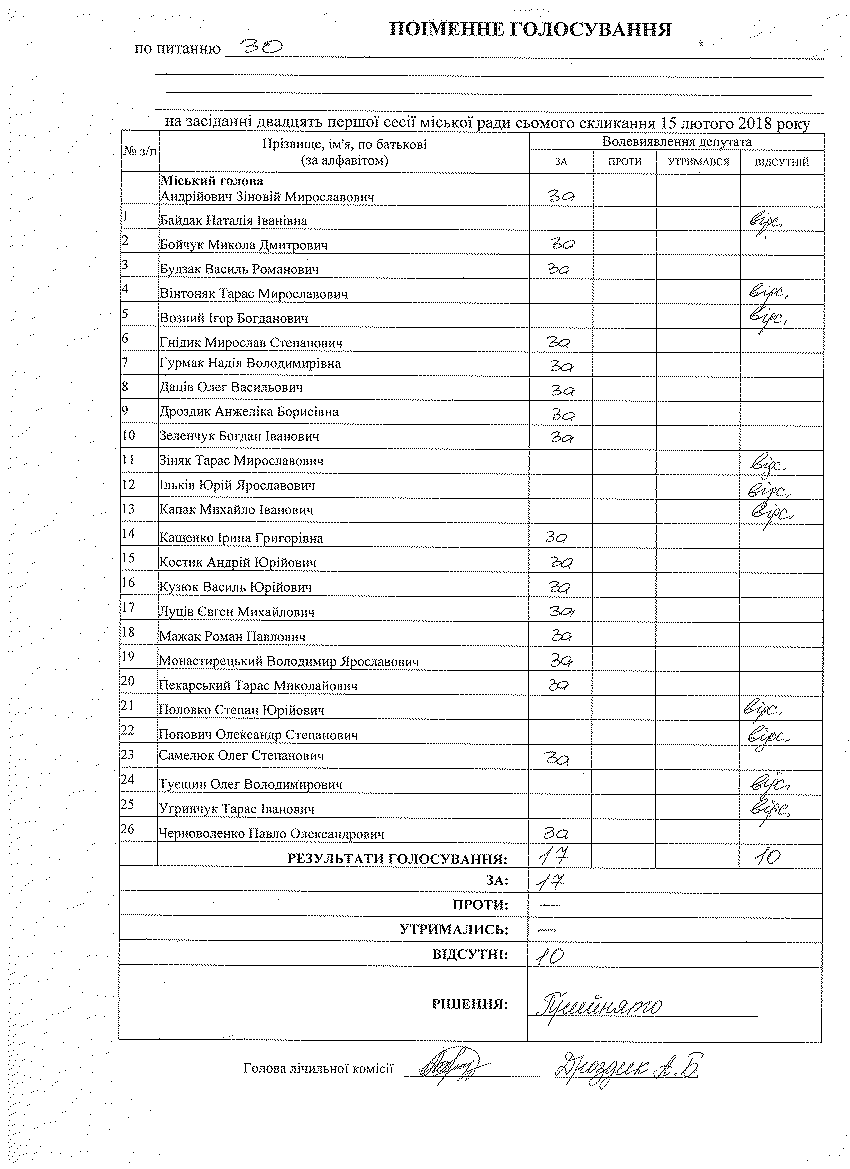 ПОІМЕННЕ ГОЛОСУВАННЯ
по питанню 30
на засіданні двадцять першої сесії міської ради сьомого скликання 15 лютого 2018 року
№ з/п Прізвище, ім'я, по батькові (за алфавітом) Волевиявлення депутата
ЗА ПРОТИ УТРИМАВСЯ ВІДСУТНІЙ
Міський голова
Андрійович Зіновій Мирославович за
1 Байдак Наталія Іванівна відс.
2 Бойчук Микола Дмитрович за
3 Будзак Василь Романович за
4 Вінтоняк Тарас Мирославович відс.
5 Возний Ігор Богданович відс.
6 Гнідик Мирослав Степанович за
7 Гурмак Надія Володимирівна за
8 Даців Олег Васильович за
9 Дроздик Анжеліка Борисівна за
10 Зеленчук Богдан Іванович за
11 Зіняк Тарас Мирославович відс.
12 Ільків Юрій Ярославович відс.
13 Капак Михайло Іванович відс.
14 Кащенко Ірина Григорівна за
15 Костик Андрій Юрійович за
16 Кузюк Василь Юрійович за
17 Луців Євген Михайлович за
18 Мажак Роман Павлович за
19 Монастирецький Володимир Ярославович за
20 Пекарський Тарас Миколайович за
21 Половко Степан Юрійович відс.
22 Попович Олександр Степанович відс.
23 Самелюк Олег Степанович за
24 Туєшин Олег Володимирович відс.
25 Угринчук Тарас Іванович відс.
26 Черноволенко Павло Олександрович за
РЕЗУЛЬТАТИ ГОЛОСУВАННЯ: 17 10
ЗА: 17
ПРОТИ: —
УТРИМАЛИСЬ: —
ВІДСУТНІ: 10
РІШЕННЯ: Прийнято
Голова лічильної комісії Дроздик А.Б.